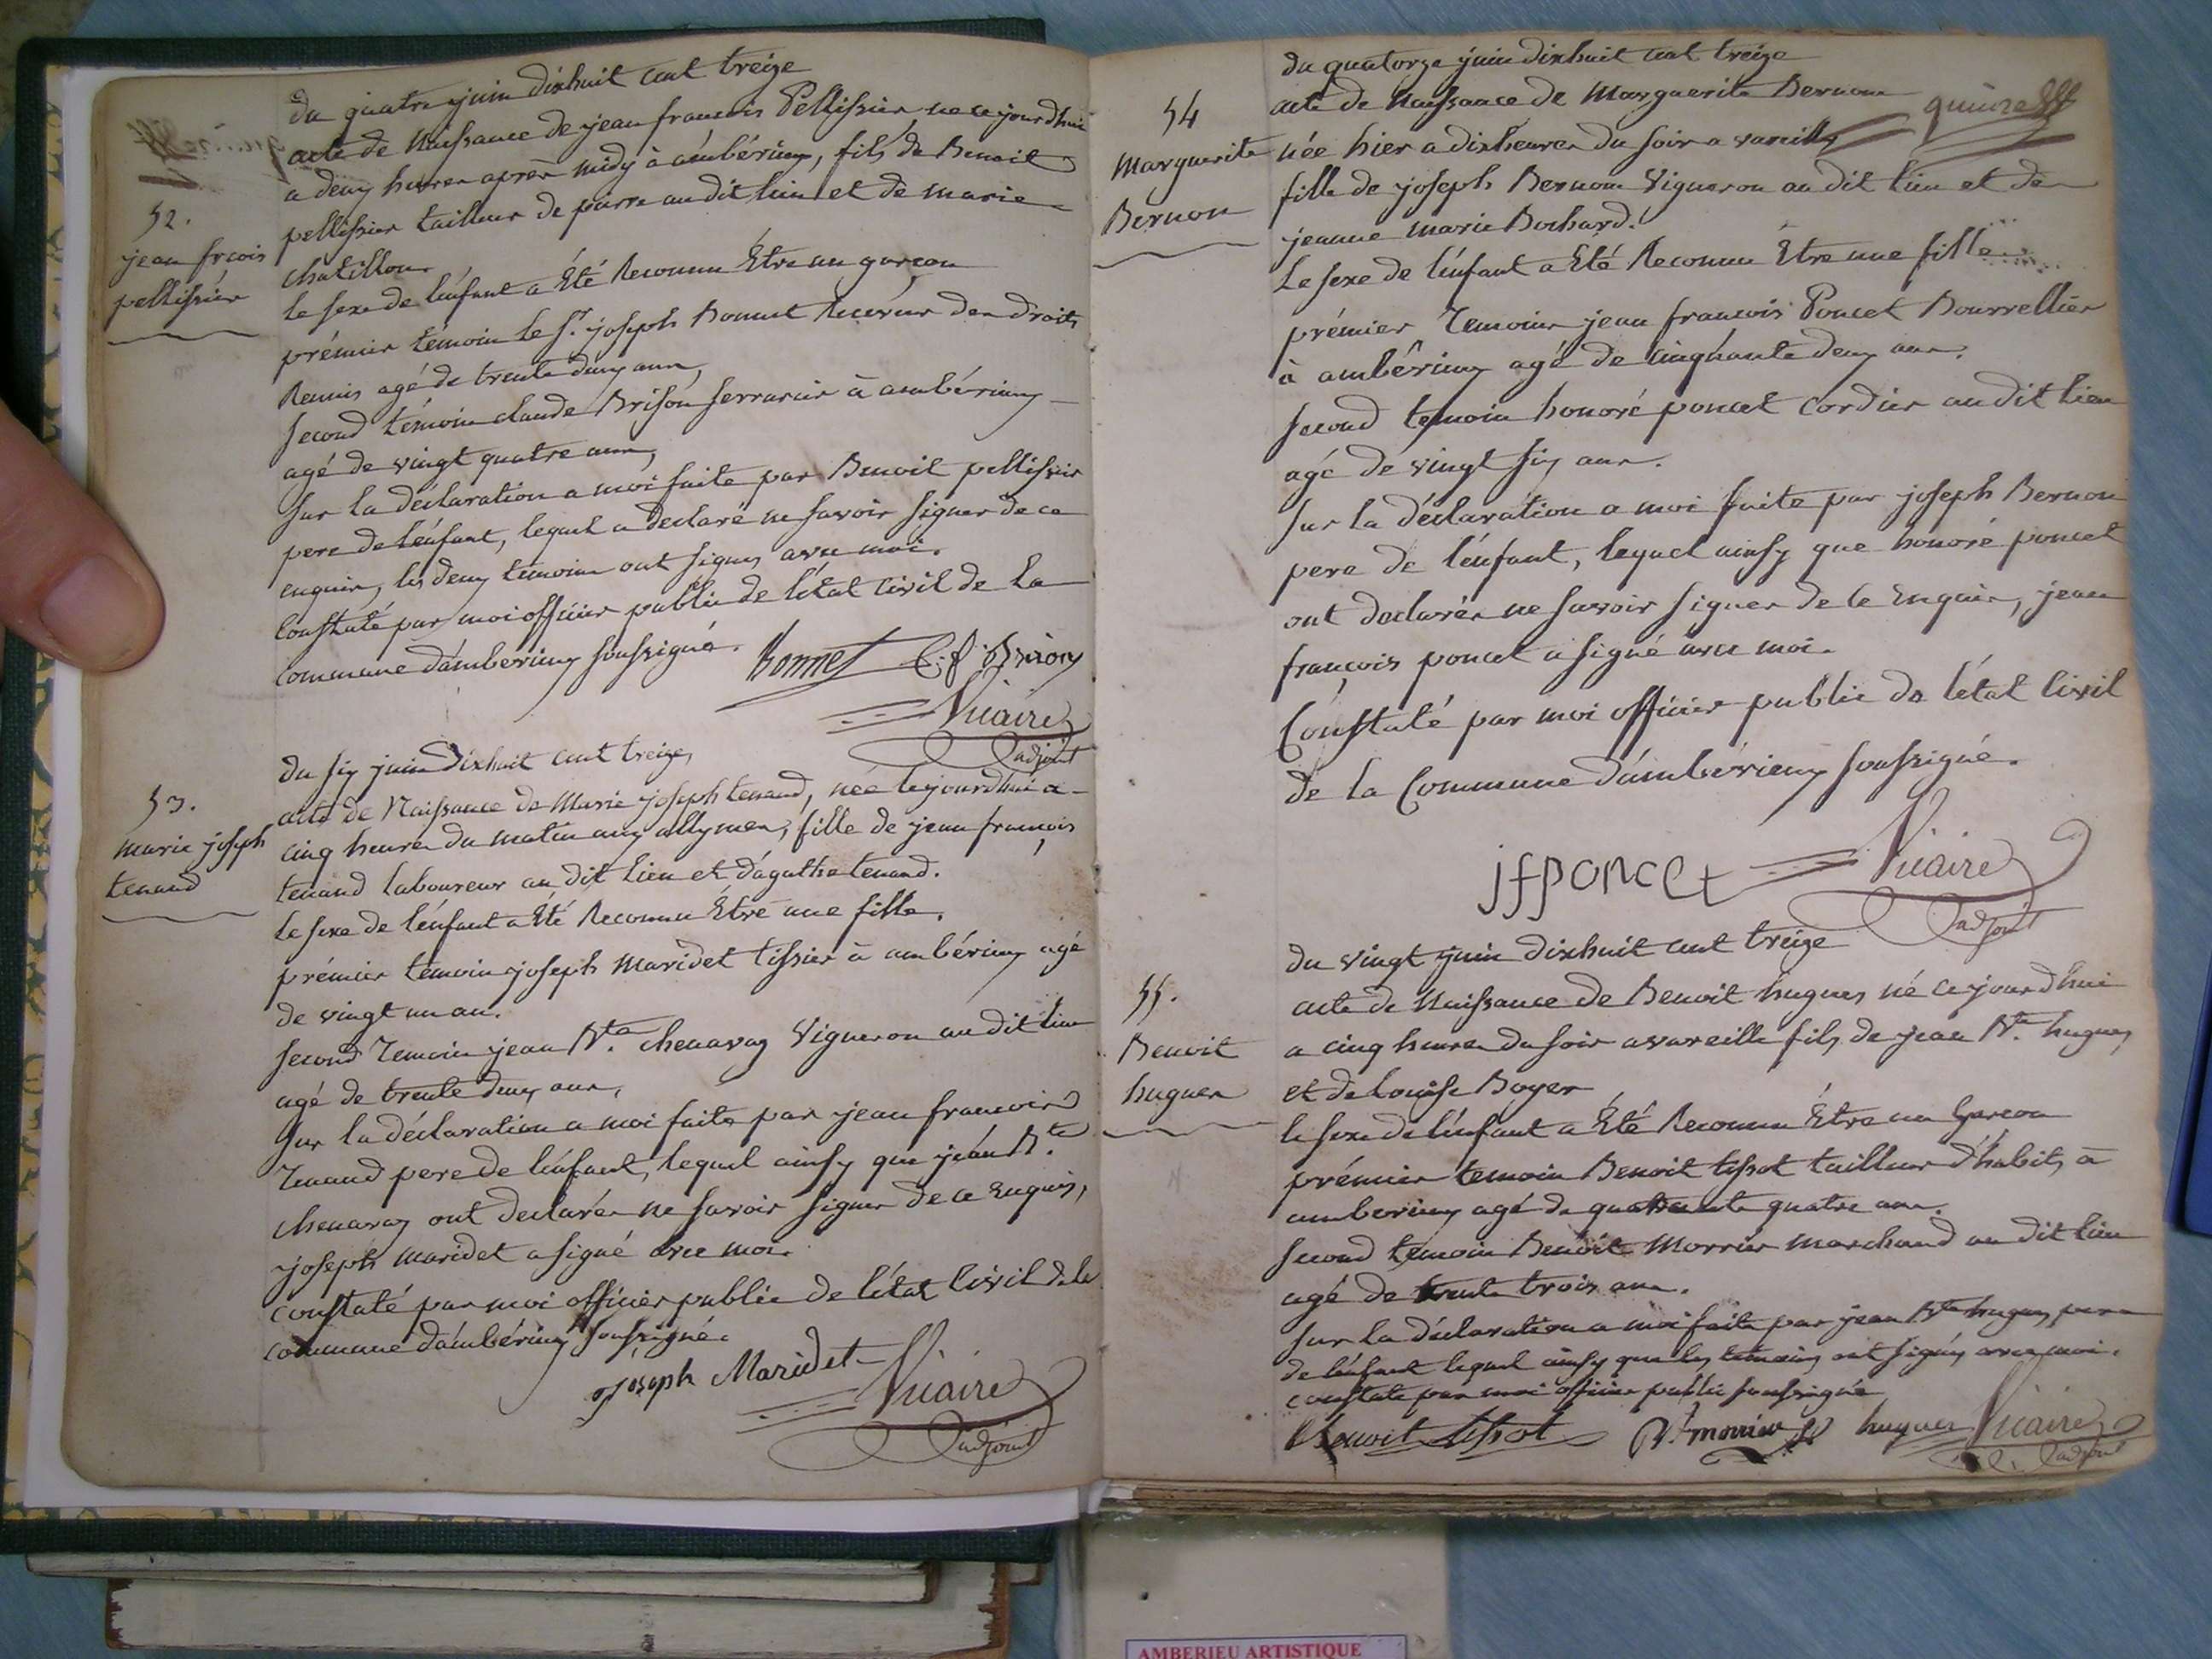 du quatre juin dixhuit cent treize
acte de Naissance de jean francois Pellissier ne ce jourdhui
a deux heures après midy à ambérieux, fils de Benoit
52.
jean frcois
pellissier
pellissier tailleur de pierre au dit lieu et de marie
chatillon.
le sexe de lénfant a Été Reconnu Être un garcon
prémier témoin le Sr. joseph Bonnet Receveur des droits
Reunis agé de trente deux ans,
second témoin claude Brison serrurier à ambérieux
agé de vingt quatre ans,
sur la déclaration a moi faite par Benoit pellissier
pere de lénfant, lequel a declaré ne savoir signer de ce
enquis, les deux témoins ont signés avec moi.
Constaté par moi officier public de létat civil de La
commune dámberieux soussigné.
Bonnet C. f. Brison
Vicaire
adjoint
du six juin dixhuit cent treize,
53.
marie joseph
tenand
acte de Naissance de Marie joseph tenand, née cejourdhui a
cinq heures du matin aux allymes, fille de jean francois
tenand laboureur au dit lieu et dágathe tenand.
Le sexe de lénfant a Été Reconnu Être une fille.
prémier temoin joseph Maridet tissier à ambérieux agé
de vingt un an.
second Temoin jean Bte. chenavaz Vigneron au dit lieu
agé de trente deux ans,
sur la déclaration a moi faite par jean francois
Tenand pere de lénfant, lequel ainsy que jean Bte.
chenavaz ont declarés ne savoir signer de ce Enquis,
joseph maridet a signé avec moi.
constaté par moi officier public de létat Civil de la
commune dámbérieux soussigné.
joseph Maridet Vicaire
adjoint
du quatorze juin dixhuit cent treize
54
Marguerite
Bernon
acte de Naissance de Marguerite Bernon
quinze
née hier a dix heures du soir a vareilles
fille de joseph Bernon Vigneron au dit lieu et de
jeanne marie Bochard.
Le sexe de lénfant a Eté Reconnu Etre une fille
prémier Temoin jean francois Poncet Bourrellier
à ambérieux agé de cinquante deux ans.
second temoin honoré poncet Cordier au dit lieu
agé de vingt six ans.
sur la déclaration a moi faite par joseph Bernon
pere de lénfant, lequel ainsy que honoré poncet
ont declarés ne savoir signer de ce Enquis, jean
francois poncet a signé avec moi.
Constaté par moi officier public de létat Civil
de la Commune dámbérieux soussigné.
jfponcet Vicaire
adjoint
du vingt juin dixhuit cent treize
55.
Benoit
hugues
acte de Naissance de Benoit hugues né ce jourdhui
a cinq heures du soir a vareille fils de jean Bte. hugues
et de Louise Boyer
le sexe de lénfant a Été Reconnu Être un Garcon
prémier temoin Benoit tissot tailleur dhabits à
amberieux agé de quarante quatre ans.
second temoin Benoit Morrier marchand au dit lieu
agé de trente trois ans.
sur la déclaration a moi faite par jean Bte hugues pere
de lénfant lequel ainsy que les temoins ont signés avec moi.
constaté par moi officier public soussigné
Benoit tissot Bt. morrier hugues Vicaire
adjoint
AMBERIEU ARTISTIQUE